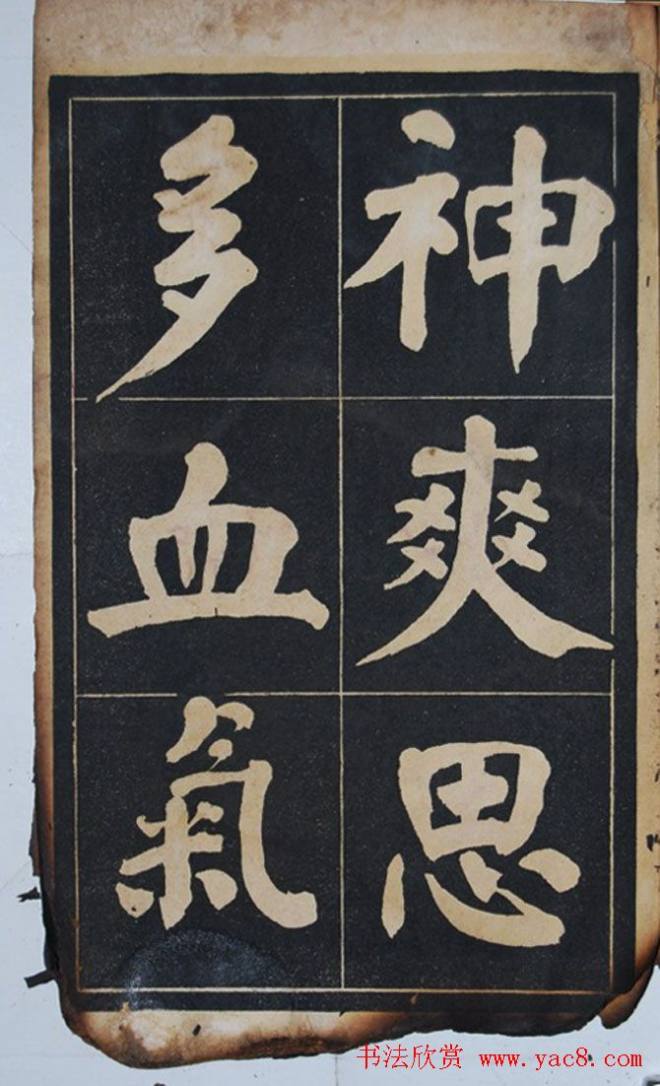 神爽思
多血氣
书法欣赏 www.yac8.com